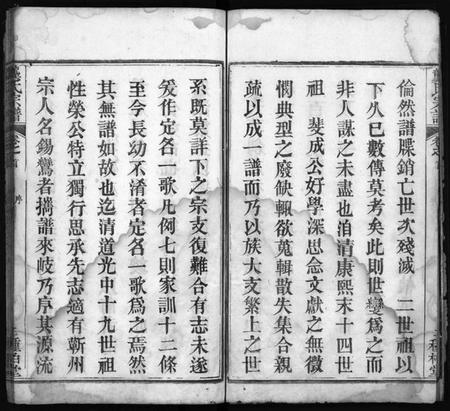 氏宗譜
卷之首
倫然譜牒銷亡世次殘滅　二世祖以
下久已數傳莫考矣此則世變爲之而
非人謀之未盡也洎清康熙末十四世
祖　斐成公好學深思念文獻之無徵
憫典型之廢缺輒欲蒐輯散失集合親
疏以成一譜而乃以族大支繁上之世
系既莫詳下之宗支復難合有志未遂
爰作定名一歌凡例七則家訓十二條
至今長幼不淆者定名一歌爲之焉然
其無譜如故也迄清道光中十九世祖
性榮公特立獨行思承先志適有蘄州
宗人名錫鸞者攜譜來岐乃序其源流
氏宗譜
卷之首
序